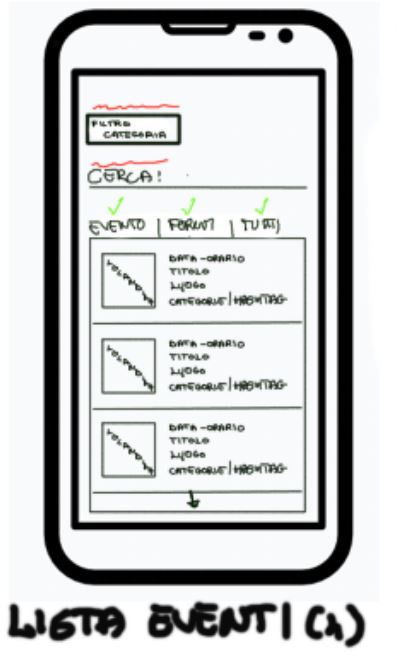 FILTRO
CATEGORIA
CERCA!
EVENTO | FORNITI | TUTTI
LOCANDINA
DATA-ORARIO
TITOLO
LUOGO
CATEGORIE | HASHTAG
LOCANDINA
DATA-ORARIO
TITOLO
LUOGO
CATEGORIE | HASHTAG
LOCANDINA
DATA-ORARIO
TITOLO
LUOGO
CATEGORIE | HASHTAG
LISTA EVENTI (1)